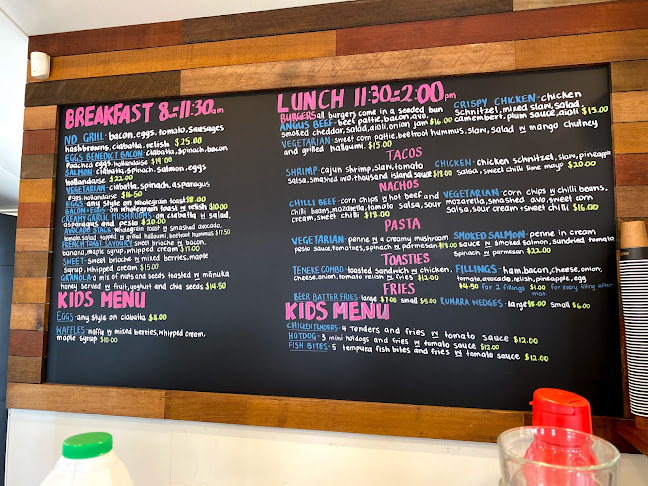 BREAKFAST 8am-11:30am
ND GRILL- bacon, eggs, tomato, sausages
hashbrowns, ciabatta, relish $25.00
EGGS BENEDICT BACON- ciabatta, spinach, bacon
Poached eggs, hollandaise $19.00
SALMON- ciabatta, spinach, salmon, eggs
hollandaise $22.00
VEGETARIAN- ciabatta, spinach, asparagus
eggs, hollandaise $16.50
EGGS- any style on wholegrain toast $12.00
BACON + EGGS- on wholegrain toast w relish $20.00
CREAMY GARLIC MUSHROOMS- on ciabatta w salad,
asparagus and pesto $20.00
AVOCADO STACK- wholegrain toast w smashed avocado,
tomato, salad topped w grilled halloumi, beetroot hummus $17.50
FRENCH TOAST SAVOURY- sweet brioche w bacon,
banana, maple syrup, whipped cream $17.00
SWEET- sweet brioche w mixed berries, maple
syrup, whipped cream $15.00
GRANOLA- a mix of nuts and seeds toasted w manuka
honey served w fruit, yoghurt and chia seeds $14.50
KIDS MENU
EGGS- any style on ciabatta $4.00
WAFFLES- waffle w mixed berries, whipped cream,
maple syrup $10.00
LUNCH 11:30am-2:00pm
BURGERS all burgers come in a seeded bun
ANGUS BEEF- beef pattie, bacon, avo,
smoked cheddar, salad, aioli, onion jam $16.00
CRISPY CHICKEN- chicken
schnitzel, mixed slaw, salad,
camembert, plum sauce, aioli $15.00
VEGETARIAN- sweet corn pattie, beetroot hummus, slaw, salad w mango chutney
and grilled halloumi. $15.00
TACOS
SHRIMP- cajun shrimp, slaw, tomato
salsa, smashed avo, thousand island sauce $18.00
CHICKEN- chicken schnitzel, slaw, pineapple
salsa, sweet chilli lime mayo $20.00
NACHOS
CHILLI BEEF- corn chips w hot beef and
chilli beans, mozarella, tomato salsa, sour
cream, sweet chilli $18.00
VEGETARIAN- corn chips w chilli beans,
mozarella, smashed avo, sweet corn
salsa, sour cream + sweet chilli $16.00
PASTA
VEGETARIAN- penne w a creamy mushroom
pesto sauce, tomatoes, spinach w parmesan $18.00
SMOKED SALMON- penne in cream
sauce w smoked salmon, sundried tomato
Spinach w parmesan $22.00
TOASTIES
TENEKE COMBO- toasted sandwich w chicken,
cheese, onion, tomato relish w fries $12.00
FILLINGS- ham, bacon, cheese, onion,
tomato, avocado, relish, pineapple, egg
$4.50 for 2 fillings $1.00 for every filling after
that
FRIES
BEER BATTER FRIES- large $7.00 small $5.00
KUMARA WEDGES- large $8.00 small $6.00
KIDS MENU
CHICKEN TENDERS- 4 tenders and fries w tomato sauce $12.00
HOTDOG- 3 mini hotdogs and fries w tomato sauce $12.00
FISH BITES- 5 tempura fish bites and fries w tomato sauce $12.00